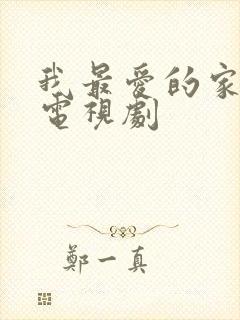 我最愛的家
電視劇
鄭一真